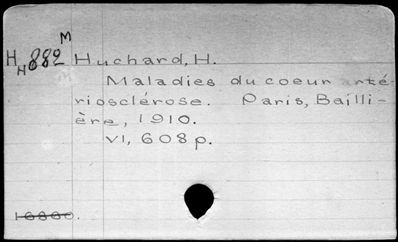 M
H H882 Huchard, H.
Maladies du coeur arté-
riosclérose. Paris, Bailli-
ère, 1910.
VI, 608 p.
16880.